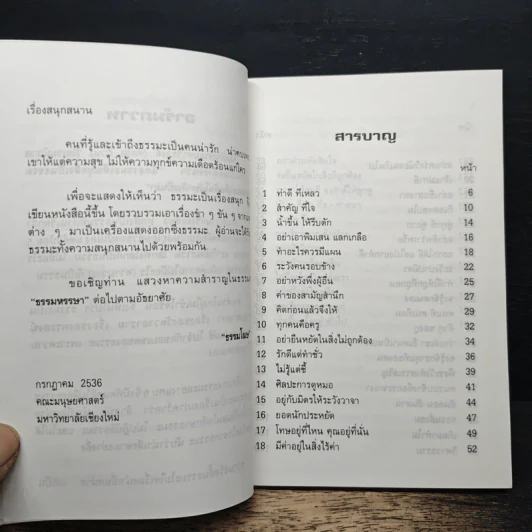 เรื่องสนุกสนาน
คนที่รู้และเข้าถึงธรรมะเป็นคนน่ารัก
เขาให้แต่ความสุข ไม่ให้ความทุกข์ความเดือดร้อนแก่ใคร
เพื่อจะแสดงให้เห็นว่า ธรรมะเป็นเรื่องสนุก
เขียนหนังสือนี้ขึ้น โดยรวบรวมเอาเรื่องขำ ๆ ขัน ๆ
ต่าง ๆ มาเป็นเครื่องแสดงออกซึ่งธรรมะ ผู้อ่านจะได้
ธรรมะทั้งความสนุกสนานไปด้วยพร้อมกัน
ขอเชิญท่าน แสวงหาความสำราญในธรรม
"ธรรมหรรษา" ต่อไปตามอัธยาศัย
กรกฎาคม 2536
คณะมนุษยศาสตร์
มหาวิทยาลัยเชียงใหม่
สารบาญ
หน้า
1 ทำดี ทีเหลว 6
2 สำคัญ ที่ใจ 10
3 น้ำขึ้น ให้รีบตัก 14
4 อย่าเอาพิมเสน แลกเกลือ 16
5 ทำอะไรควรมีแผน 18
6 ระวังคนรอบข้าง 22
7 อย่าหวังพึ่งผู้อื่น 25
8 ค่าของสามัญสำนึก 27
9 คิดก่อนแล้วจึงให้ 29
10 ทุกคนคือครู 31
11 อย่ายืนหยัดในสิ่งไม่ถูกต้อง 33
12 รักดีแต่ทำชั่ว 35
13 ไม่รู้แต่ชี้ 37
14 ศิลปะการดูหมอ 39
15 อยู่กับมิตรให้ระวังวาจา 41
16 ยอดนักประหยัด 47
17 โทษอยู่ที่ไหน คุณอยู่ที่นั่น 49
18 มีค่าอยู่ในสิ่งไร้ค่า 52